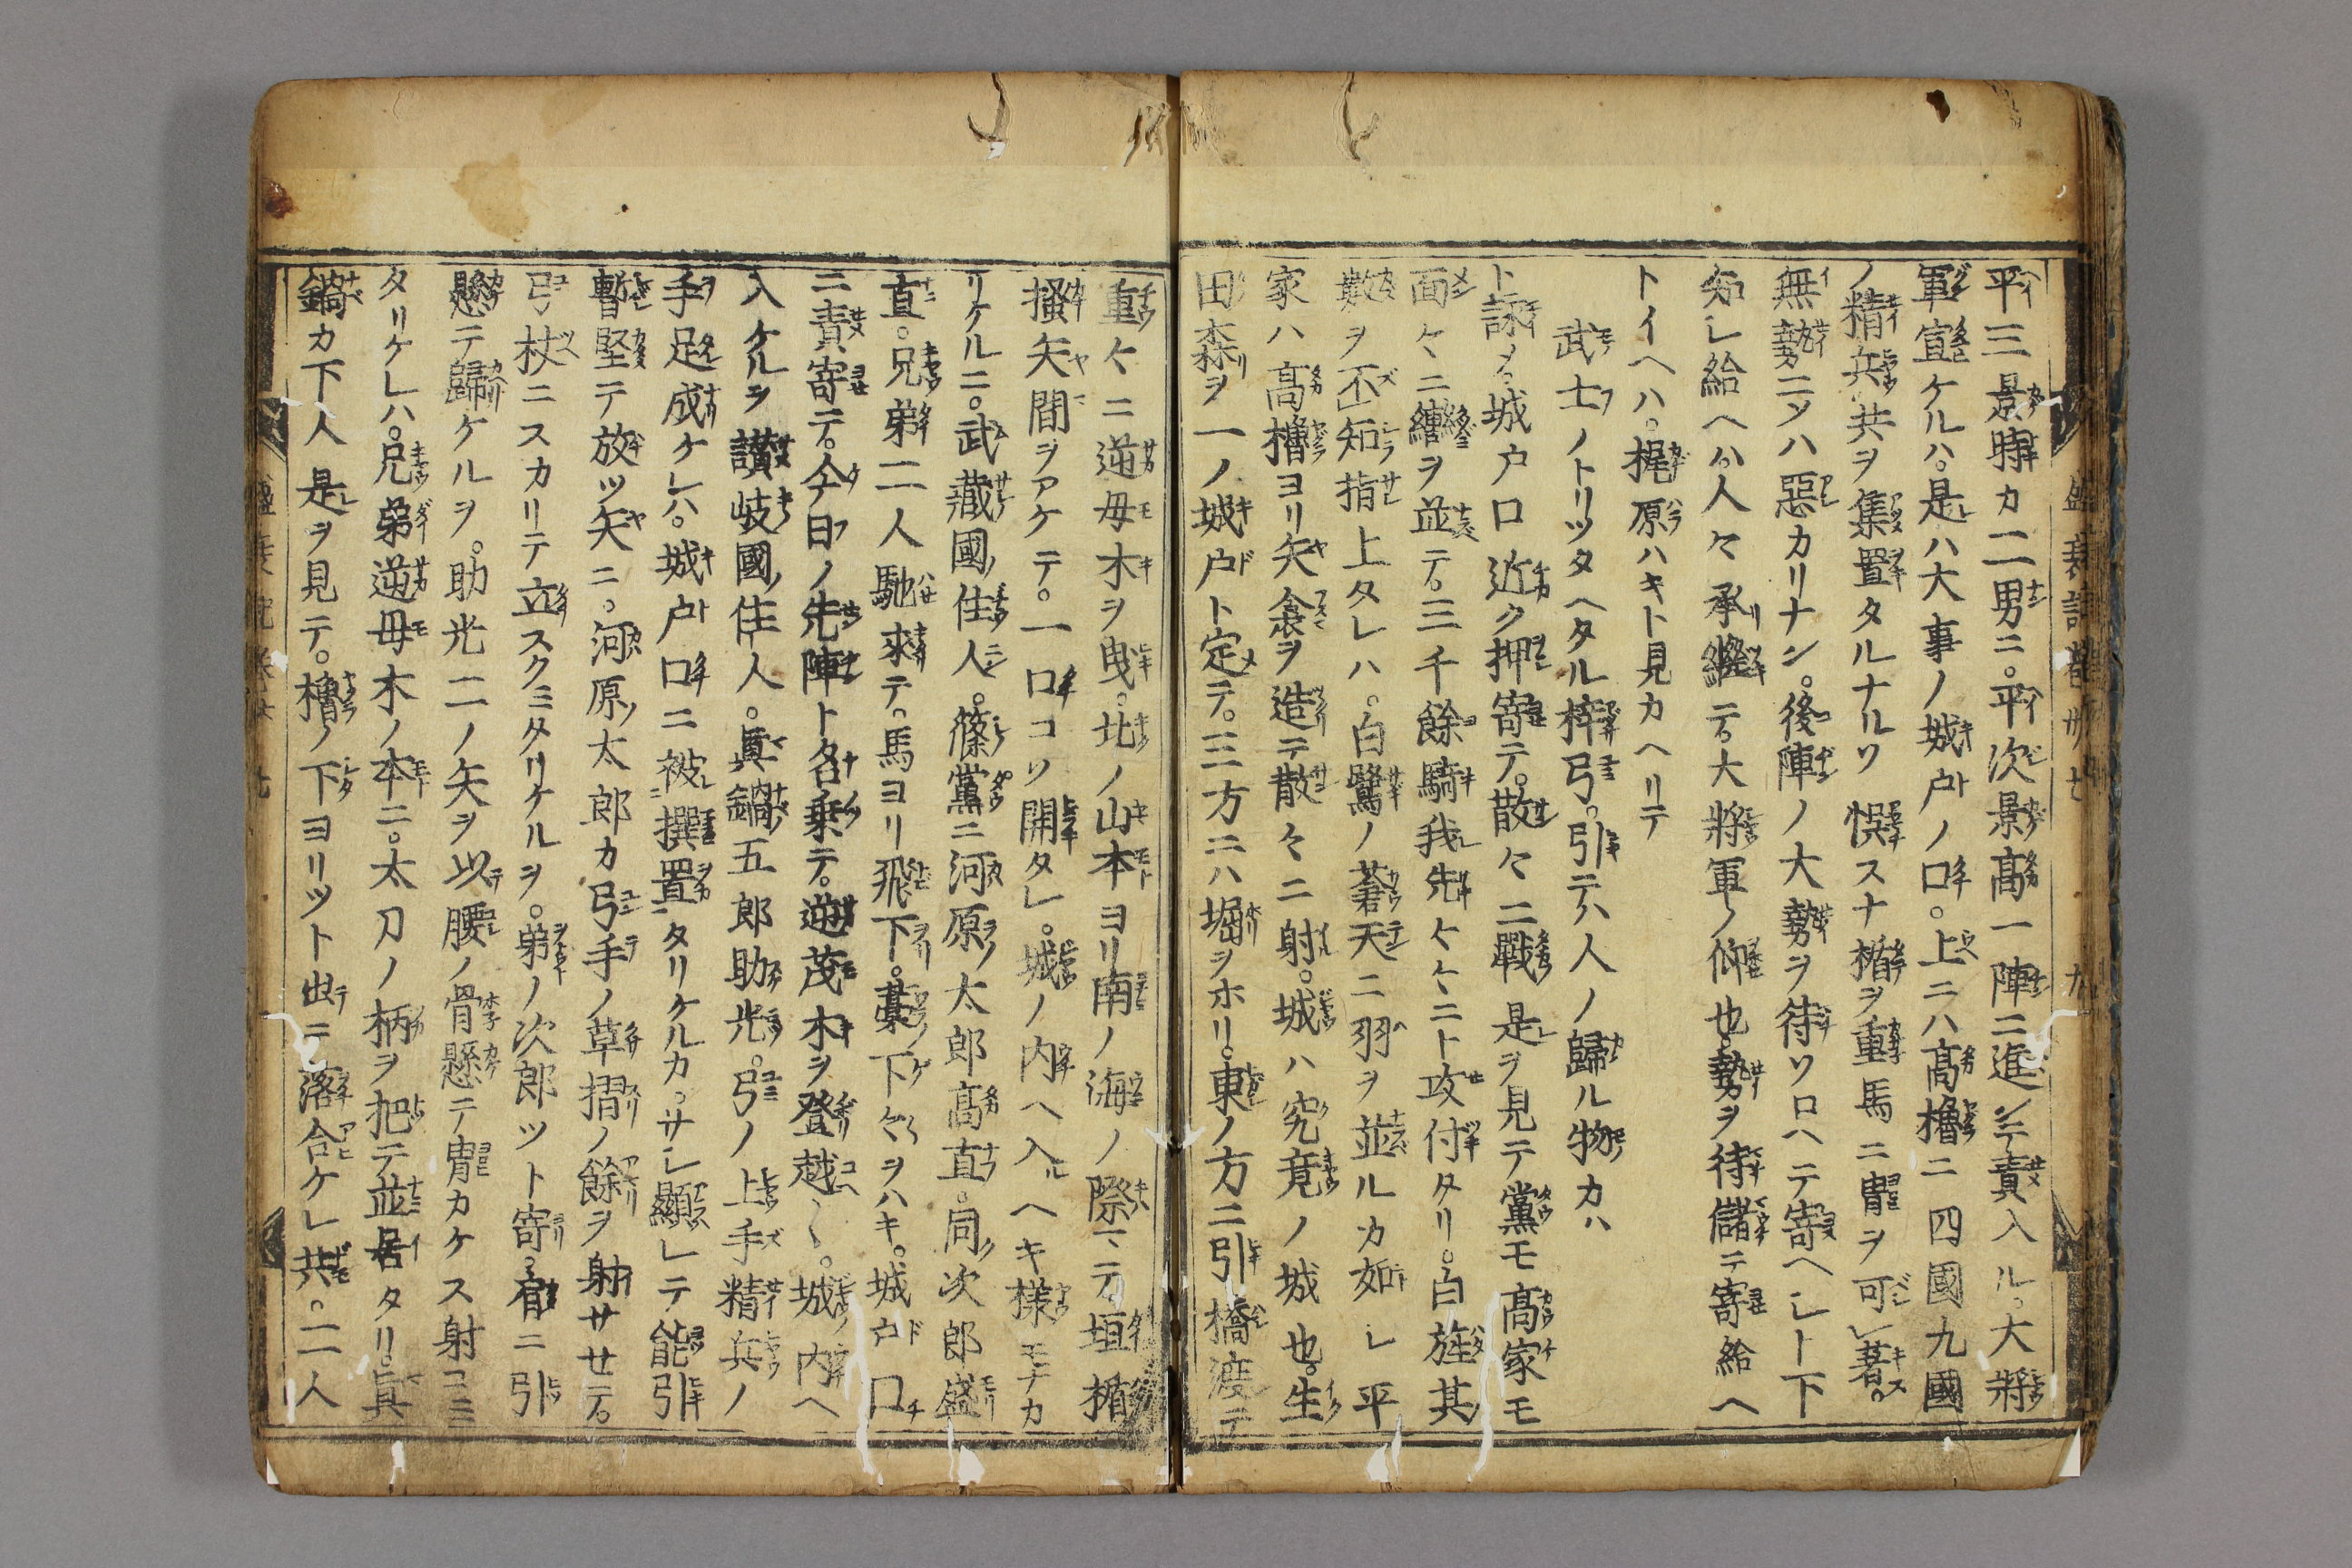 平三景時カ二男ニ。平次景髙一陣ニ進ンテ責入ル。大將
軍宣ケルハ。是ハ大事ノ城戸ノ口。上ニハ髙櫓ニ四國九國
ノ精兵共ヲ集置タルナルソ悞スナ楯ヲ重馬ニ冑ヲ可レ著。
無勢ニ〆ハ惡カリナン。後陣ノ大勢ヲ待ソロヘテ寄ヘシト下
知シ給ヘハ。人々承繼テ。大將軍ノ仰也。勢ヲ待儲テ寄給ヘ
トイヘハ。梶原ハキト見カヘリテ
武士ノトリツタヘタル梓弓。引テハ人ノ歸ル物カハ
ト詠〆。城戸口近ク押寄テ。散々ニ戰是ヲ見テ黨モ髙家モ
面々ニ纏ヲ並テ。三千餘騎我先々々ニト攻付タリ。白旌其
數ヲ不レ知指上タレハ。白鷺ノ蒼天ニ羽ヲ並ルカ如シ平
家ハ髙櫓ヨリ矢衾ヲ造テ散々ニ射。城ハ究竟ノ城也。生
田森ヲ一ノ城戸ト定テ。三方ニハ堀ヲホリ。東ノ方ニ引橋渡テ
重々ニ逆母木ヲ曳。北ノ山本ヨリ南ノ海ノ際マテ。垣楯
掻矢間ヲアケテ。一口コソ開タレ。城ノ内ヘ入ヘキ樣モナカ
リケルニ。武藏國ノ住人。篠黨ニ河原ノ太郎髙直。同ノ次郎盛
直。兄弟二人馳來テ。馬ヨリ飛下。藁下々ヲハキ。城戸口
ニ責寄テ。今日ノ先陣ト名乗テ。逆茂木ヲ登越〱。城ノ内ヘ
入ケルヲ讃岐國ノ住人。眞鍋五郎助光。弓ノ上手精兵ノ
手足成ケレハ。城戸口ニ被撰置タリケルカ。サシ顯レテ能引
暫堅テ放ツ矢ニ。河原ノ太郎カ弓手ノ草摺ノ餘ヲ射サセテ。
弓杖ニスカリテ立スクミタリケルヲ。弟ノ次郎ツト寄。肩ニ引
懸テ歸ケルヲ。助光二ノ矢ヲ以テ腰ノ骨懸テ冑カケス射コミ
タリケレハ。兄弟逆母木ノ本ニ。太刀ノ柄ヲ把テ並居タリ。眞
鍋カ下人是ヲ見テ。櫓ノ下ヨリツト出テ落合ケレ共。二人